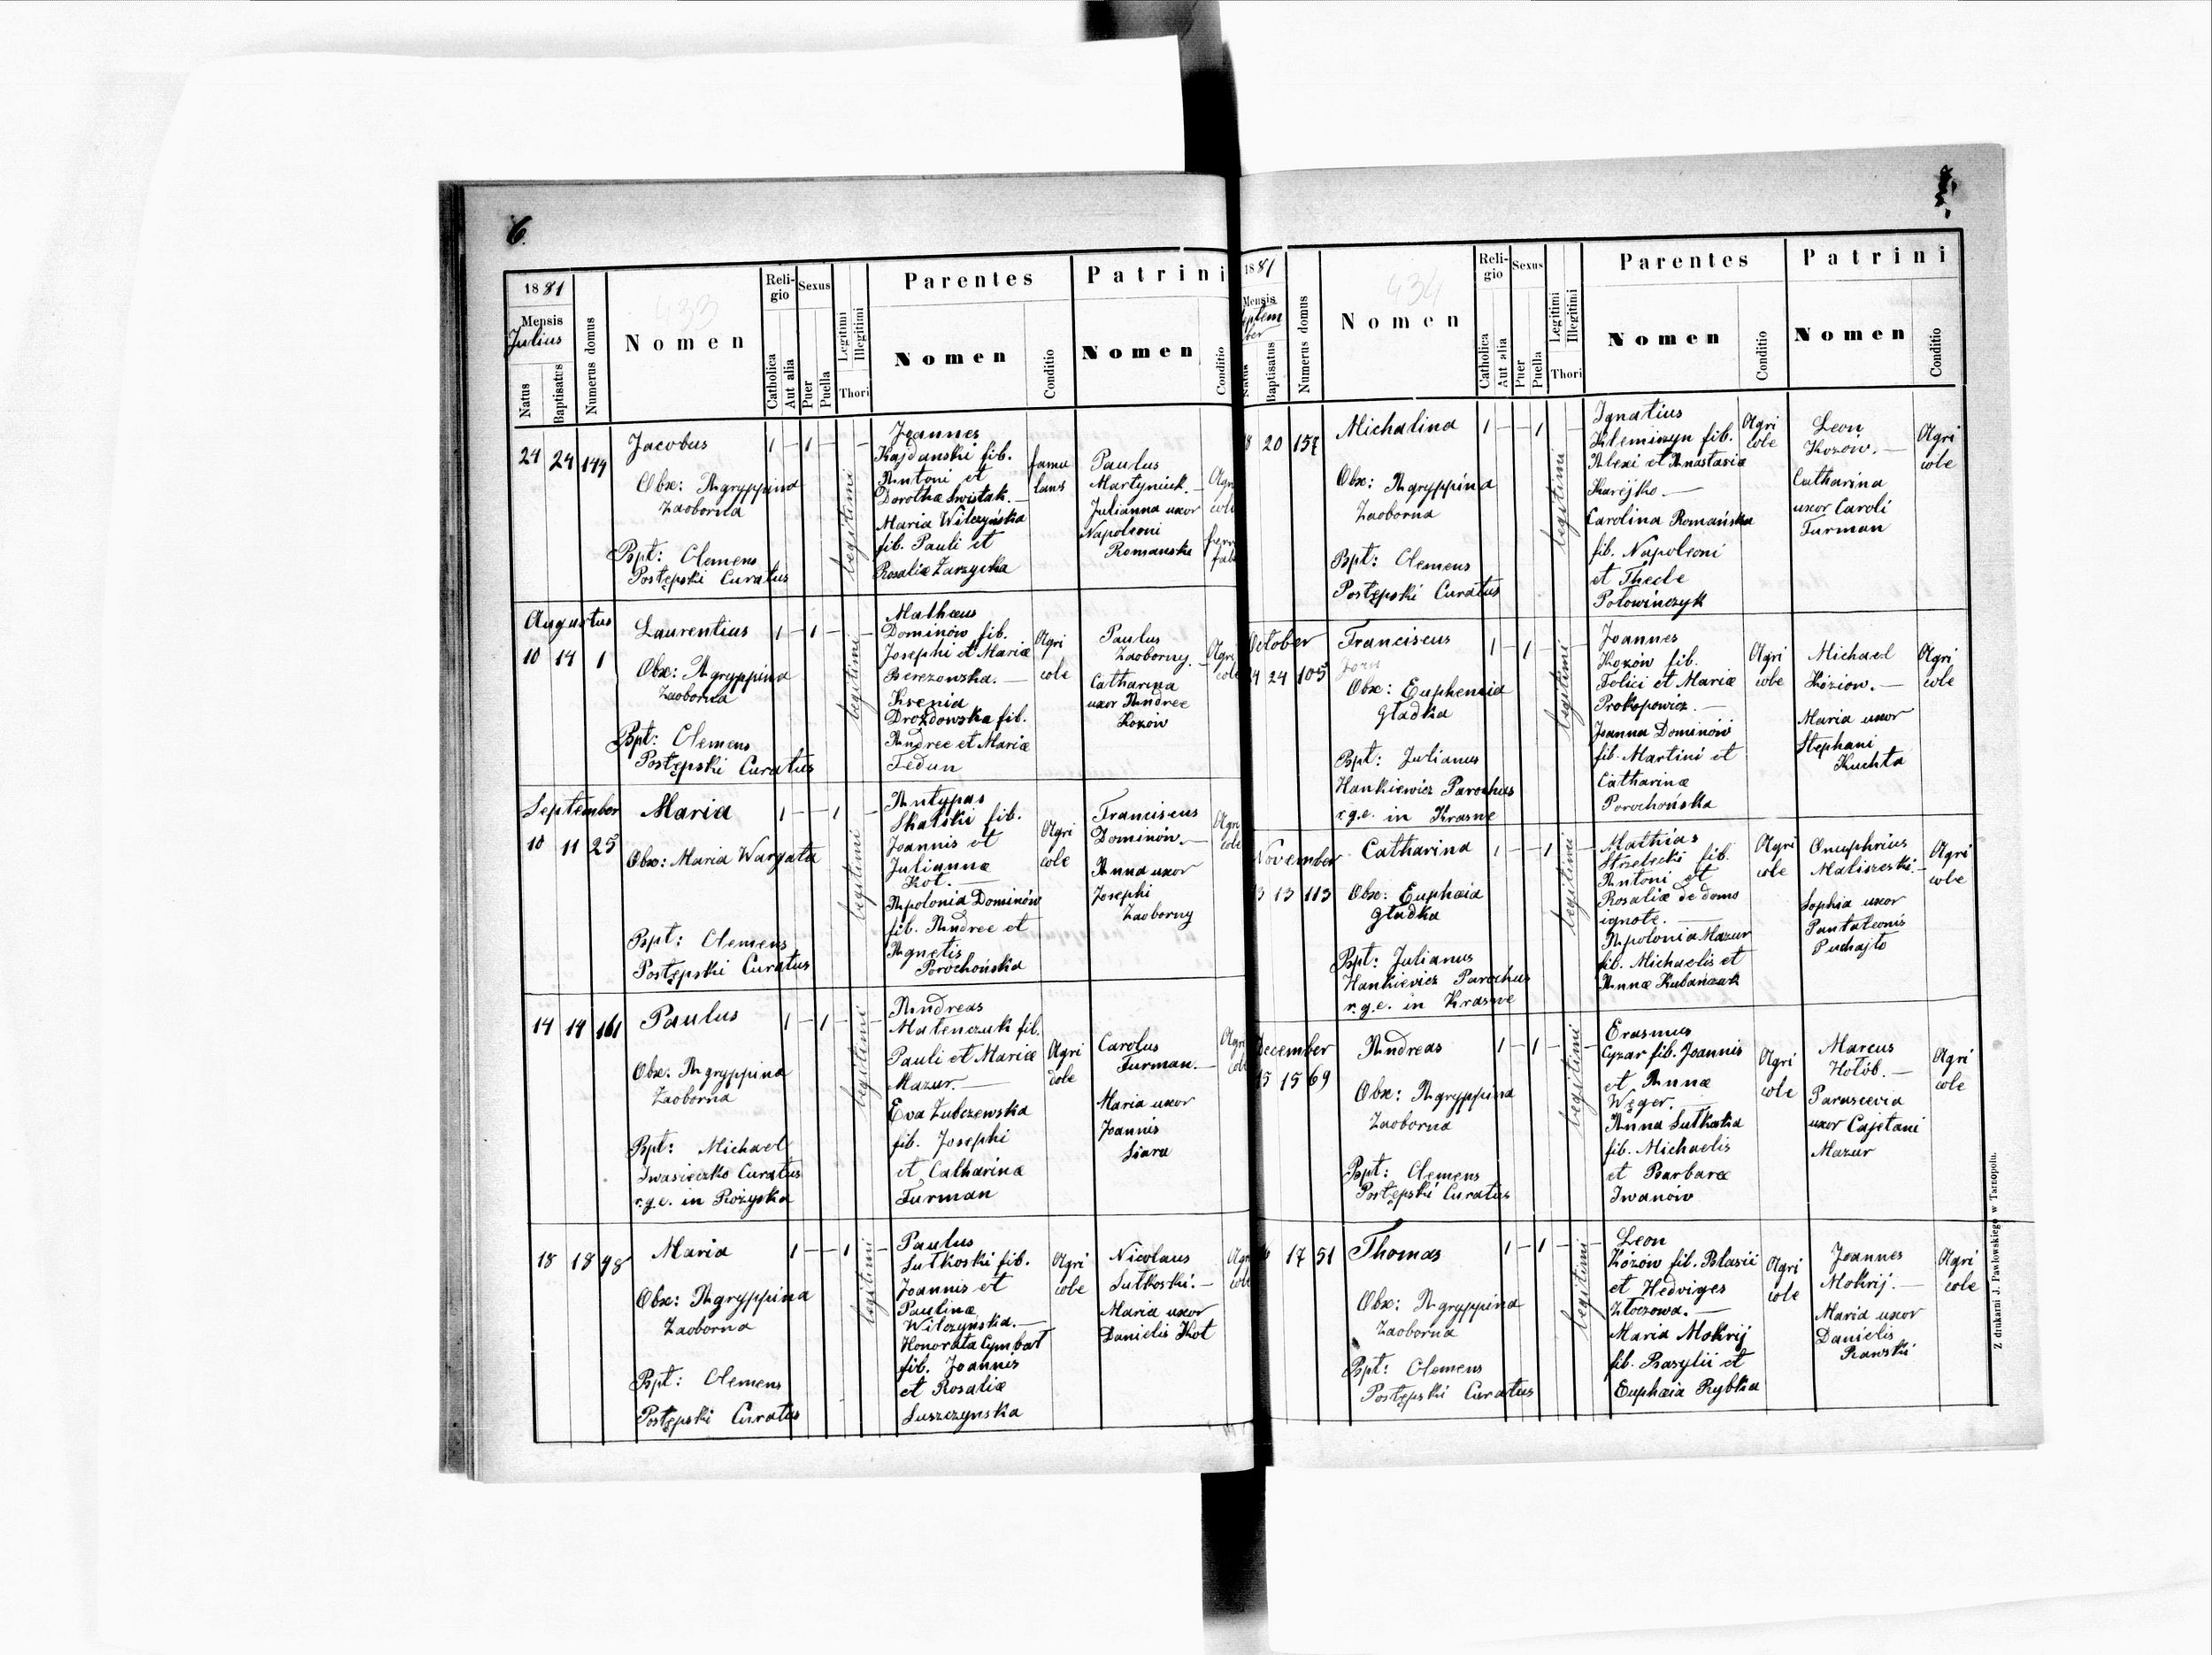 6.
1881
Mensis
Julius
Natus
Baptisatus
Numerus domus
433
Nomen
Religio
Catholica
Aut alia
Sexus
Puer
Puella
Legitimi
Illegitimi
Thori
Parentes
Nomen
Conditio
Patrini
Nomen
Conditio
24 24 149
Jacobus
Obx: Agryppina
Zaoborna
Bpt: Clemens
Postępski Curatus
1 - 1 -
legitimi
Joannes
Kajdanski fil.
Antoni et
Dorothæ Swistak. —
Maria Wilczyńska
fil. Pauli et
Rosaliæ Zarzycka
famu
lans
Paulus
Martyniuk. —
Julianna uxor
Napoleoni
Romanski
Augustus
10 14 1
Laurentius
Obx: Agryppina
Zaoborna
Bpt: Clemens
Postępski Curatus
1 - 1 -
legitimi
Mathæus
Dominów fil.
Josephi et Mariæ
Berezowska. —
Ksenia
Drozdowska fil.
Andree et Mariæ
Fedun
Agri
cole
Paulus
Zaoborny. —
Catharina
uxor Andree
Kozów
September
10 11 25
Maria
Obx: Maria Wargata
Bpt: Clemens
Postępski Curatus
1 - - 1 -
legitimi
Antypas
Skalski fil.
Joannis et
Juliannæ
Kot. —
Apolonia Dominów
fil. Andree et
Agnetis
Porochońska
Agri
cole
Franciscus
Dominów. —
Anna uxor
Josephi
Zaoborny
14 14 161
Paulus
Obx: Agryppina
Zaoborna
Bpt: Michael
Iwasieczko Curatus
r.g.e. in Rożyska
1 - 1 -
legitimi
Andreas
Matenczuk fil.
Pauli et Mariæ
Mazur. —
Eva Zubczewska
fil. Josephi
et Catharinæ
Furman
Agri
cole
Carolus
Furman. —
Maria uxor
Joannis
Siara
18 18 98
Maria
Obx: Agryppina
Zaoborna
Bpt: Clemens
Postępski Curatus
1 - - 1 -
legitimi
Paulus
Sutkoski fil.
Joannis et
Paulinæ
Wilczyńska. —
Honorata Cymbat
fil. Joannis
et Rosaliæ
Suszczynska
Agri
cole
Nicolaus
Sutkoski. —
Maria uxor
Danielis Kot
1881
Mensis
September
Natus
Baptisatus
Numerus domus
434
Nomen
Religio
Catholica
Aut alia
Sexus
Puer
Puella
Legitimi
Illegitimi
Thori
Parentes
Nomen
Conditio
Patrini
Nomen
Conditio
20 157
Michalina
Obx: Agryppina
Zaoborna
Bpt: Clemens
Postępski Curatus
1 - - 1 -
legitimi
Ignatius
Kleminzyn fil.
Alexi et Anastasiæ
Karejko —
Carolina Romańska
fil. Napoleoni
et Thecle
Potowińczyk
Agri
cole
Leon
Kozów. —
Catharina
uxor Caroli
Furman
Agri
cole
October
24 24 105
Franciscus
Obx: Euphemia
Gładka
Bpt: Julianus
Hankiewicz Parochus
r.g.e. in Krasne
1 - 1 -
legitimi
Joannes
Kozów fil.
Felici et Mariæ
Prokopowicz. —
Joanna Dominów
fil. Martini et
Catharinæ
Porochońska
Agri
cole
Michael
Kóziow. —
Maria uxor
Stephani
Kuchta
Agri
cole
November
13 13 113
Catharina
Obx: Euphæia
Gładka
Bpt: Julianus
Hankievicz Parochus
r.g.e. in Krasne
1 - - 1 -
legitimi
Mathias
Strzelecki fil.
Antoni et
Rosaliæ de domo
ignote. —
Apolonia Mazur
fil. Michaelis et
Annæ Kubańczuk
Agri
cole
Onuphrius
Maliszeski. —
Sophia uxor
Pantaleonis
Puchajto
Agri
cole
December
15 15 69
Andreas
Obx: Agryppina
Zaoborna
Bpt: Clemens
Postępski Curatus
1 - 1 -
legitimi
Erasmus
Cyzar fil. Joannis
et Annæ
Węger. —
Anna Sutkoska
fil. Michaelis
et Barbaræ
Iwanów
Agri
cole
Marcus
Hołób. —
Parascevia
uxor Cajetani
Mazur
Agri
cole
17 51
Thomas
Obx: Agryppina
Zaoborna
Bpt: Clemens
Postępski Curatus
1 - 1 -
legitimi
Leon
Kózów fil. Blasii
et Hedviges
Złoczowa. —
Maria Mokrij
fil. Basylii et
Euphæia Rybka
Agri
cole
Joannes
Mokrij. —
Maria uxor
Danielis
Rawski
Agri
cole
Z drukarni J. Pawłowskiego w Tarnopolu.